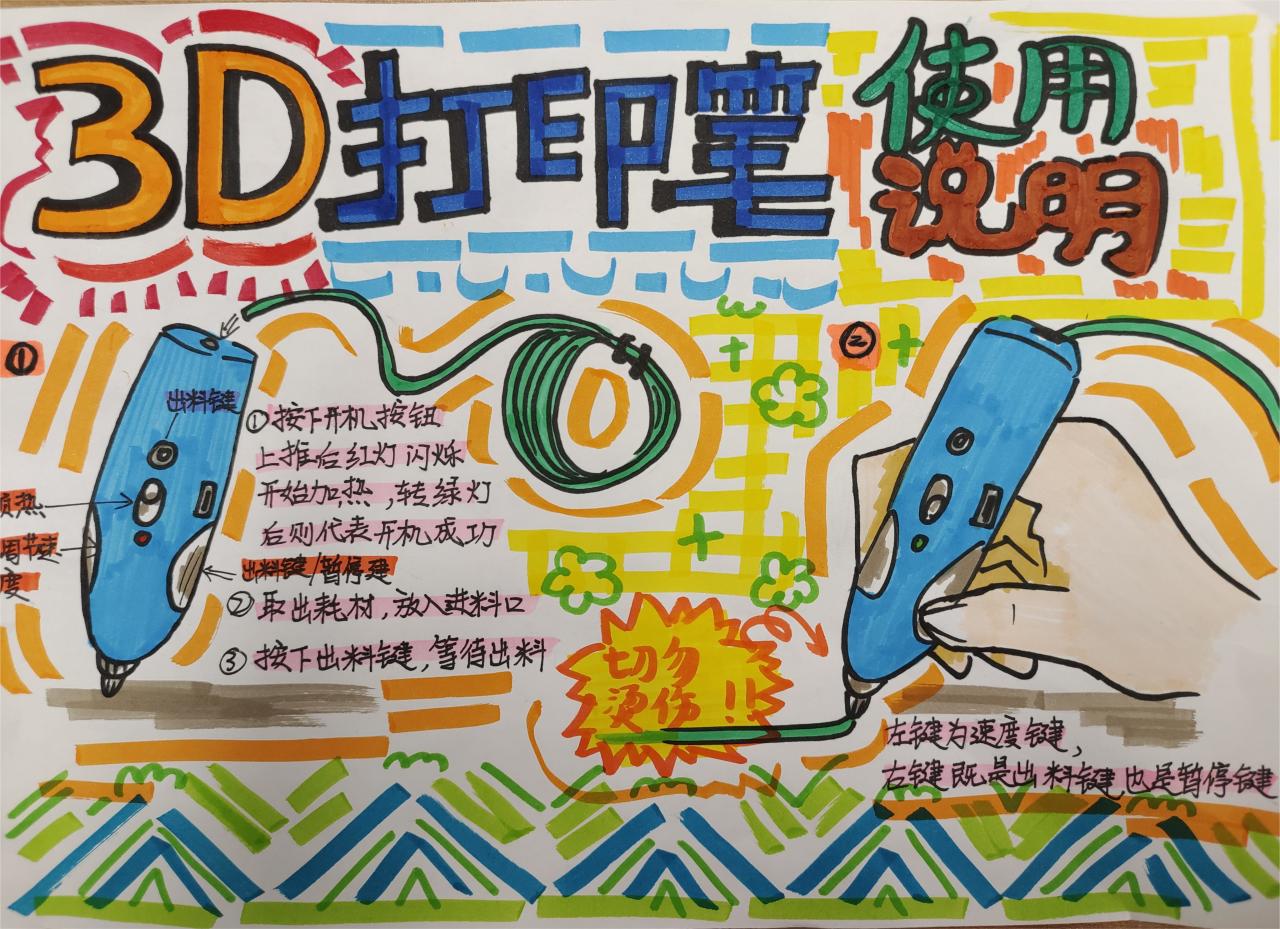 3D打印笔
使用
说明
①
出料键
预热
调节速
度
①按下开机按钮
上推后红灯闪烁
开始加热,转绿灯
后则代表开机成功
出料键/暂停建
②取出耗材,放入进料口
③按下出料键,等待出料
②
切勿
烫伤!!
左键为速度键,
右键既是出料键也是暂停键